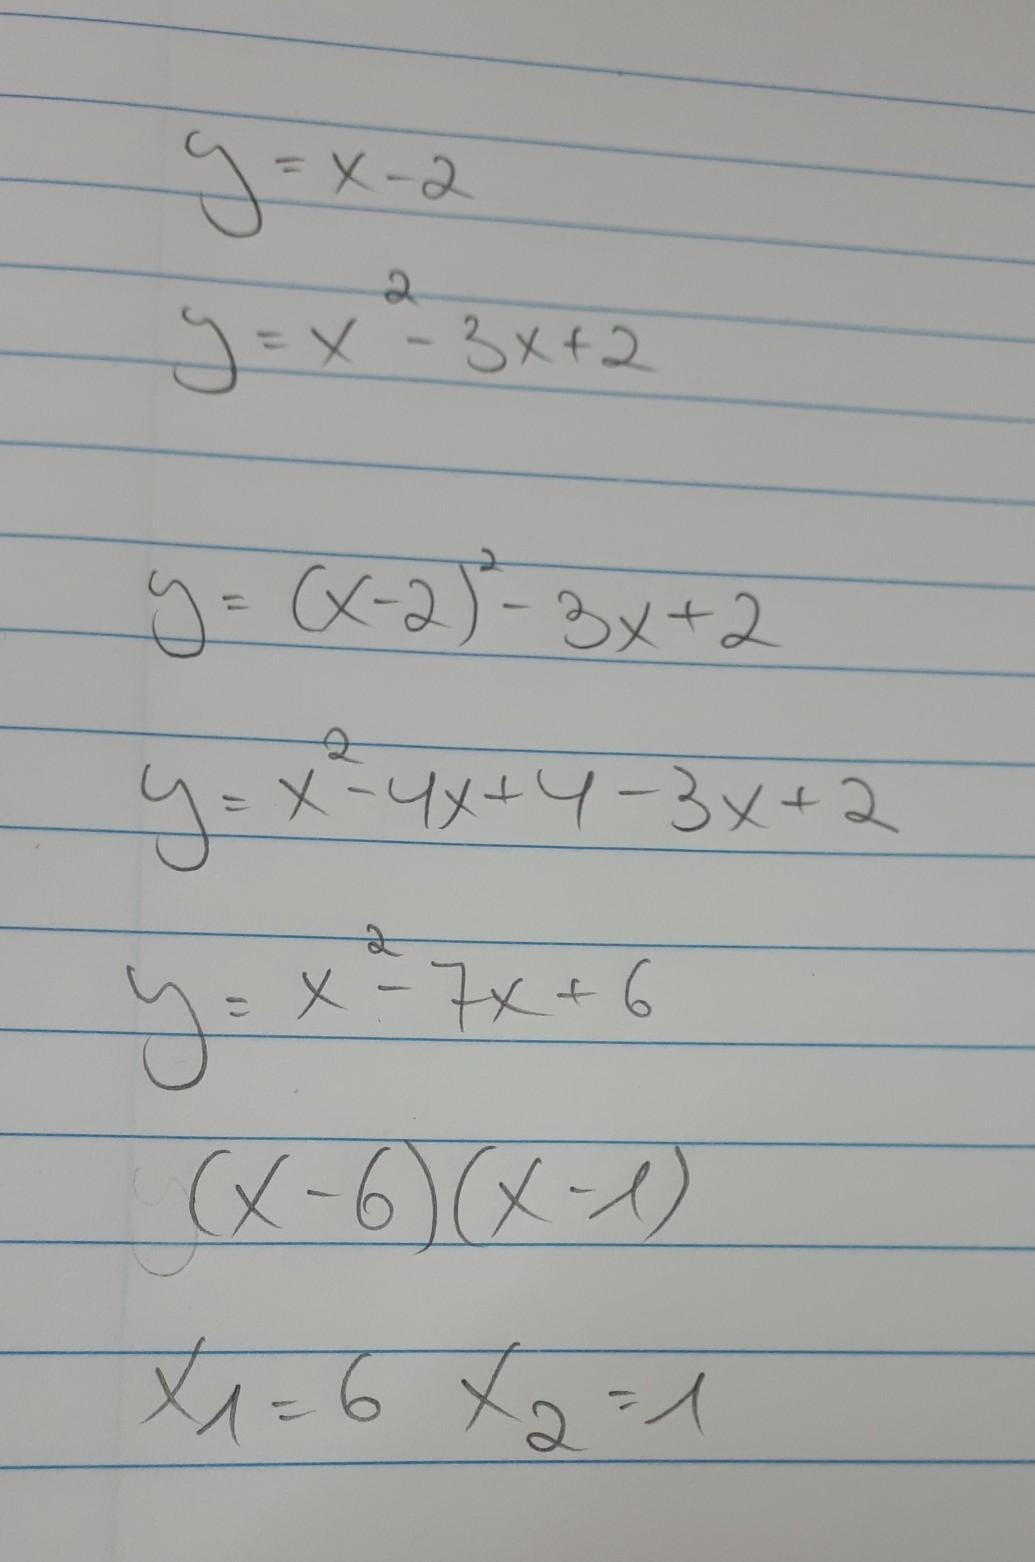 y = x - 2
y = x² - 3x + 2
y = (x-2)² - 3x + 2
y = x² - 4x + 4 - 3x + 2
y = x² - 7x + 6
(x - 6)(x - 1)
x₁ = 6 x₂ = 1